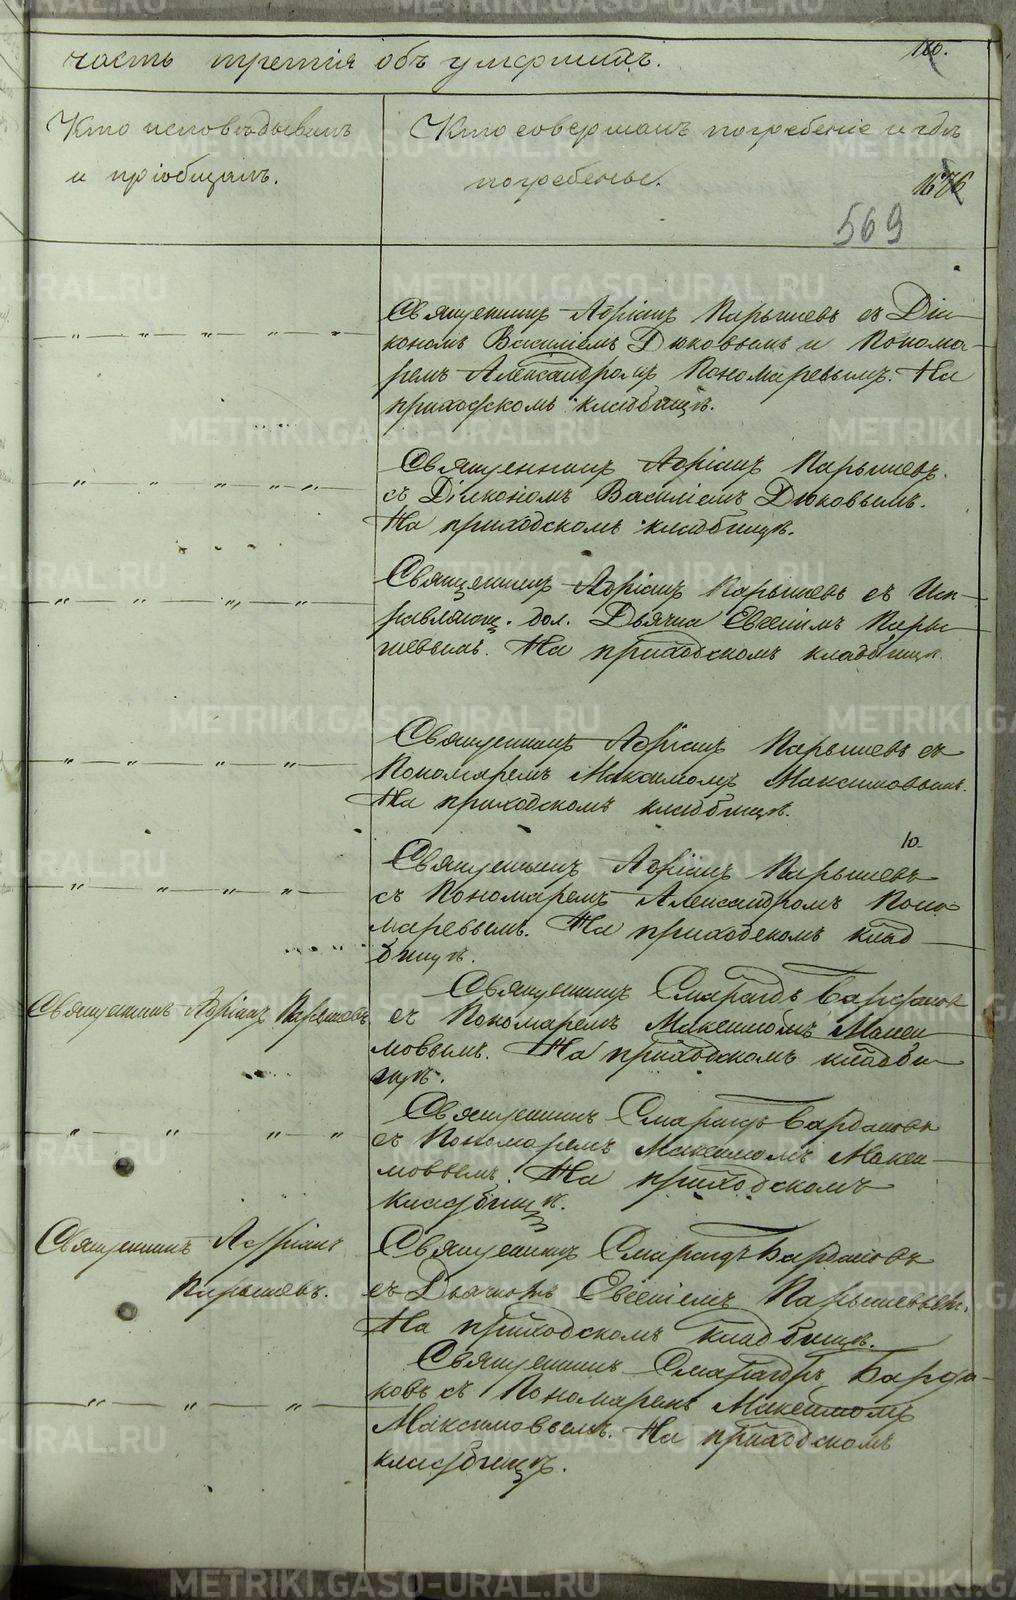 часть третія объ умершихъ.
180.
Кто исповѣдывалъ
и пріобщалъ.
Кто совершалъ погребеніе и гдѣ
погребены.
1676
569
Священникъ Адріанъ Парышевъ съ Діа-
кономъ Василіемъ Дюковымъ и Понома-
ремъ Александромъ Пономаревымъ. На
приходскомъ кладбищѣ.
Священникъ Адріанъ Парышевъ
съ Діакономъ Василіемъ Дюковымъ.
На приходскомъ кладбищѣ.
Священникъ Адріанъ Парышевъ съ Исп-
равляющ. дол. Дьячка Евгеніемъ Пары-
шевымъ. На приходскомъ кладбищѣ.
Священникъ Адріанъ Парышевъ съ
Пономаремъ Максимомъ Максимовымъ.
На приходскомъ кладбищѣ.
10
Священникъ Адріанъ Парышевъ
съ Пономаремъ Александромъ Поно-
маревымъ. На приходскомъ клад-
бищѣ.
Священникъ Адріанъ Парышевъ
Священникъ Смарагдъ Бардаковъ
съ Пономаремъ Максимомъ Макси-
мовымъ. На приходскомъ кладби-
щѣ.
Священникъ Смарагдъ Бардаковъ
съ Пономаремъ Максимомъ Макси-
мовымъ. На приходскомъ
кладбищѣ.
Священникъ Адріанъ
Парышевъ.
Священникъ Смарагдъ Бардаковъ
съ Дьячкомъ Евгеніемъ Парышевымъ.
На приходскомъ кладбищѣ.
Священникъ Смарагдъ Барда-
ковъ съ Пономаремъ Максимомъ
Максимовымъ. На приходскомъ
кладбищѣ.
METRIKI.GASO-URAL.RU